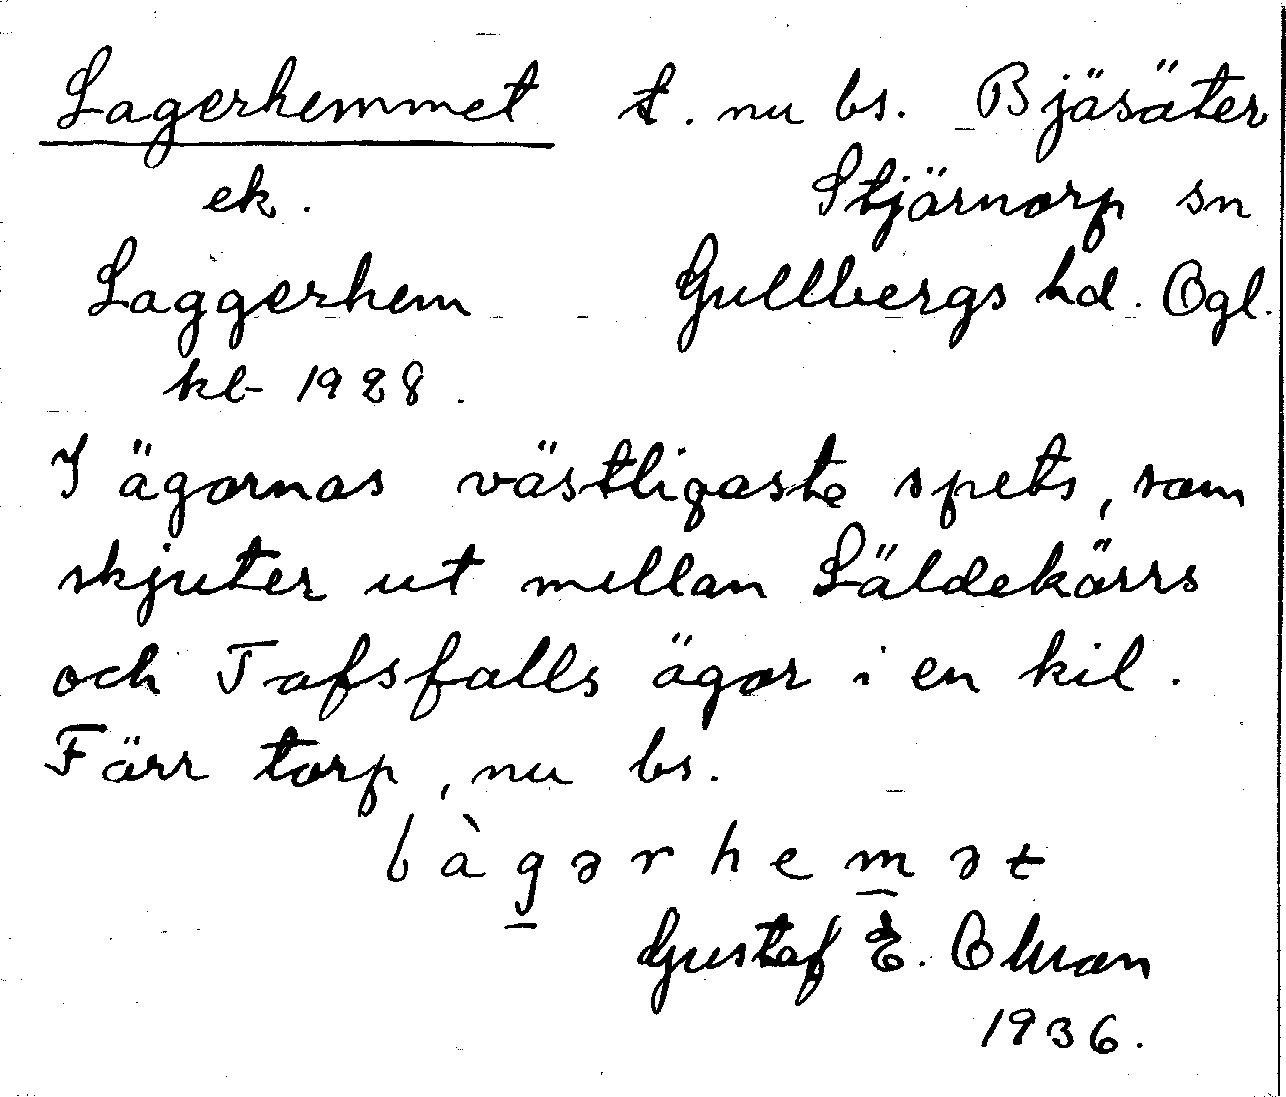 Lagerhemmet t. nu bs. Bjäsäter
ek. Stjärnorp sn
Laggerhem Gullbergs hd. Ögl.
kb 1928.
I ägornas västligaste spets, som
skjuter ut mellan Säldekärrs
och Tafsfalls ägor i en kil.
Förr torp, nu bs.
làgərhemət
Gustaf E.
1936.